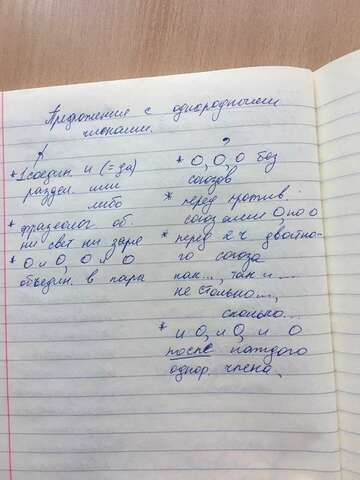 Предложения с однородными
членами.
* 1 соедин. и (= да)
раздел. или
либо
* фразеолог. об.
ни свет ни заря
* О и О, О и О
объедин. в пары
,
* О, О, О без
союзов
* перед против.
союзами О, но О
* перед 2 ч. двойно-
го союза
как..., так и...
не столько...,
сколько...
* и О, и О, и О
после каждого
однор. члена.